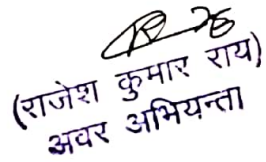 (राजेश कुमार राय)
अवर अभियन्ता